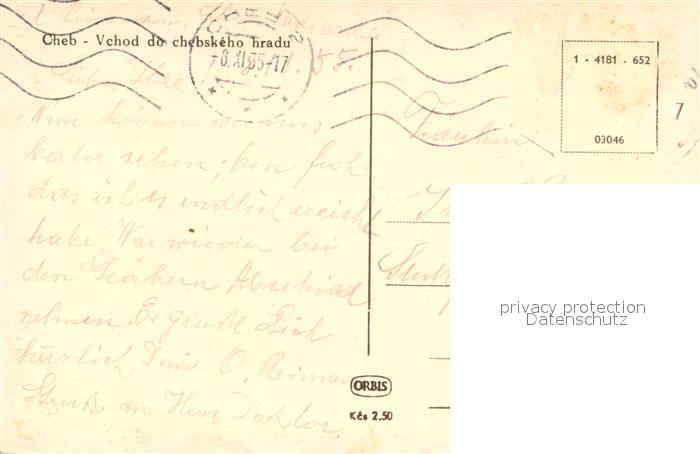 Cheb - Vchod do chebského hradu
CHEB 2
-8.XI.55-17
55.
1 · 4181 · 652
03046
7
Fräulein
Nun können wir uns
bald sehen, bin froh
das ich es endlich ereicht
habe. War wieder bei
den Gräbern Abschied
nehmen. Es grüßt Dich
herzlich Deine O. Reiman
Grüße an Herr Doktor.
Stutt
privacy protection
Datenschutz
ORBIS
Kčs 2,50